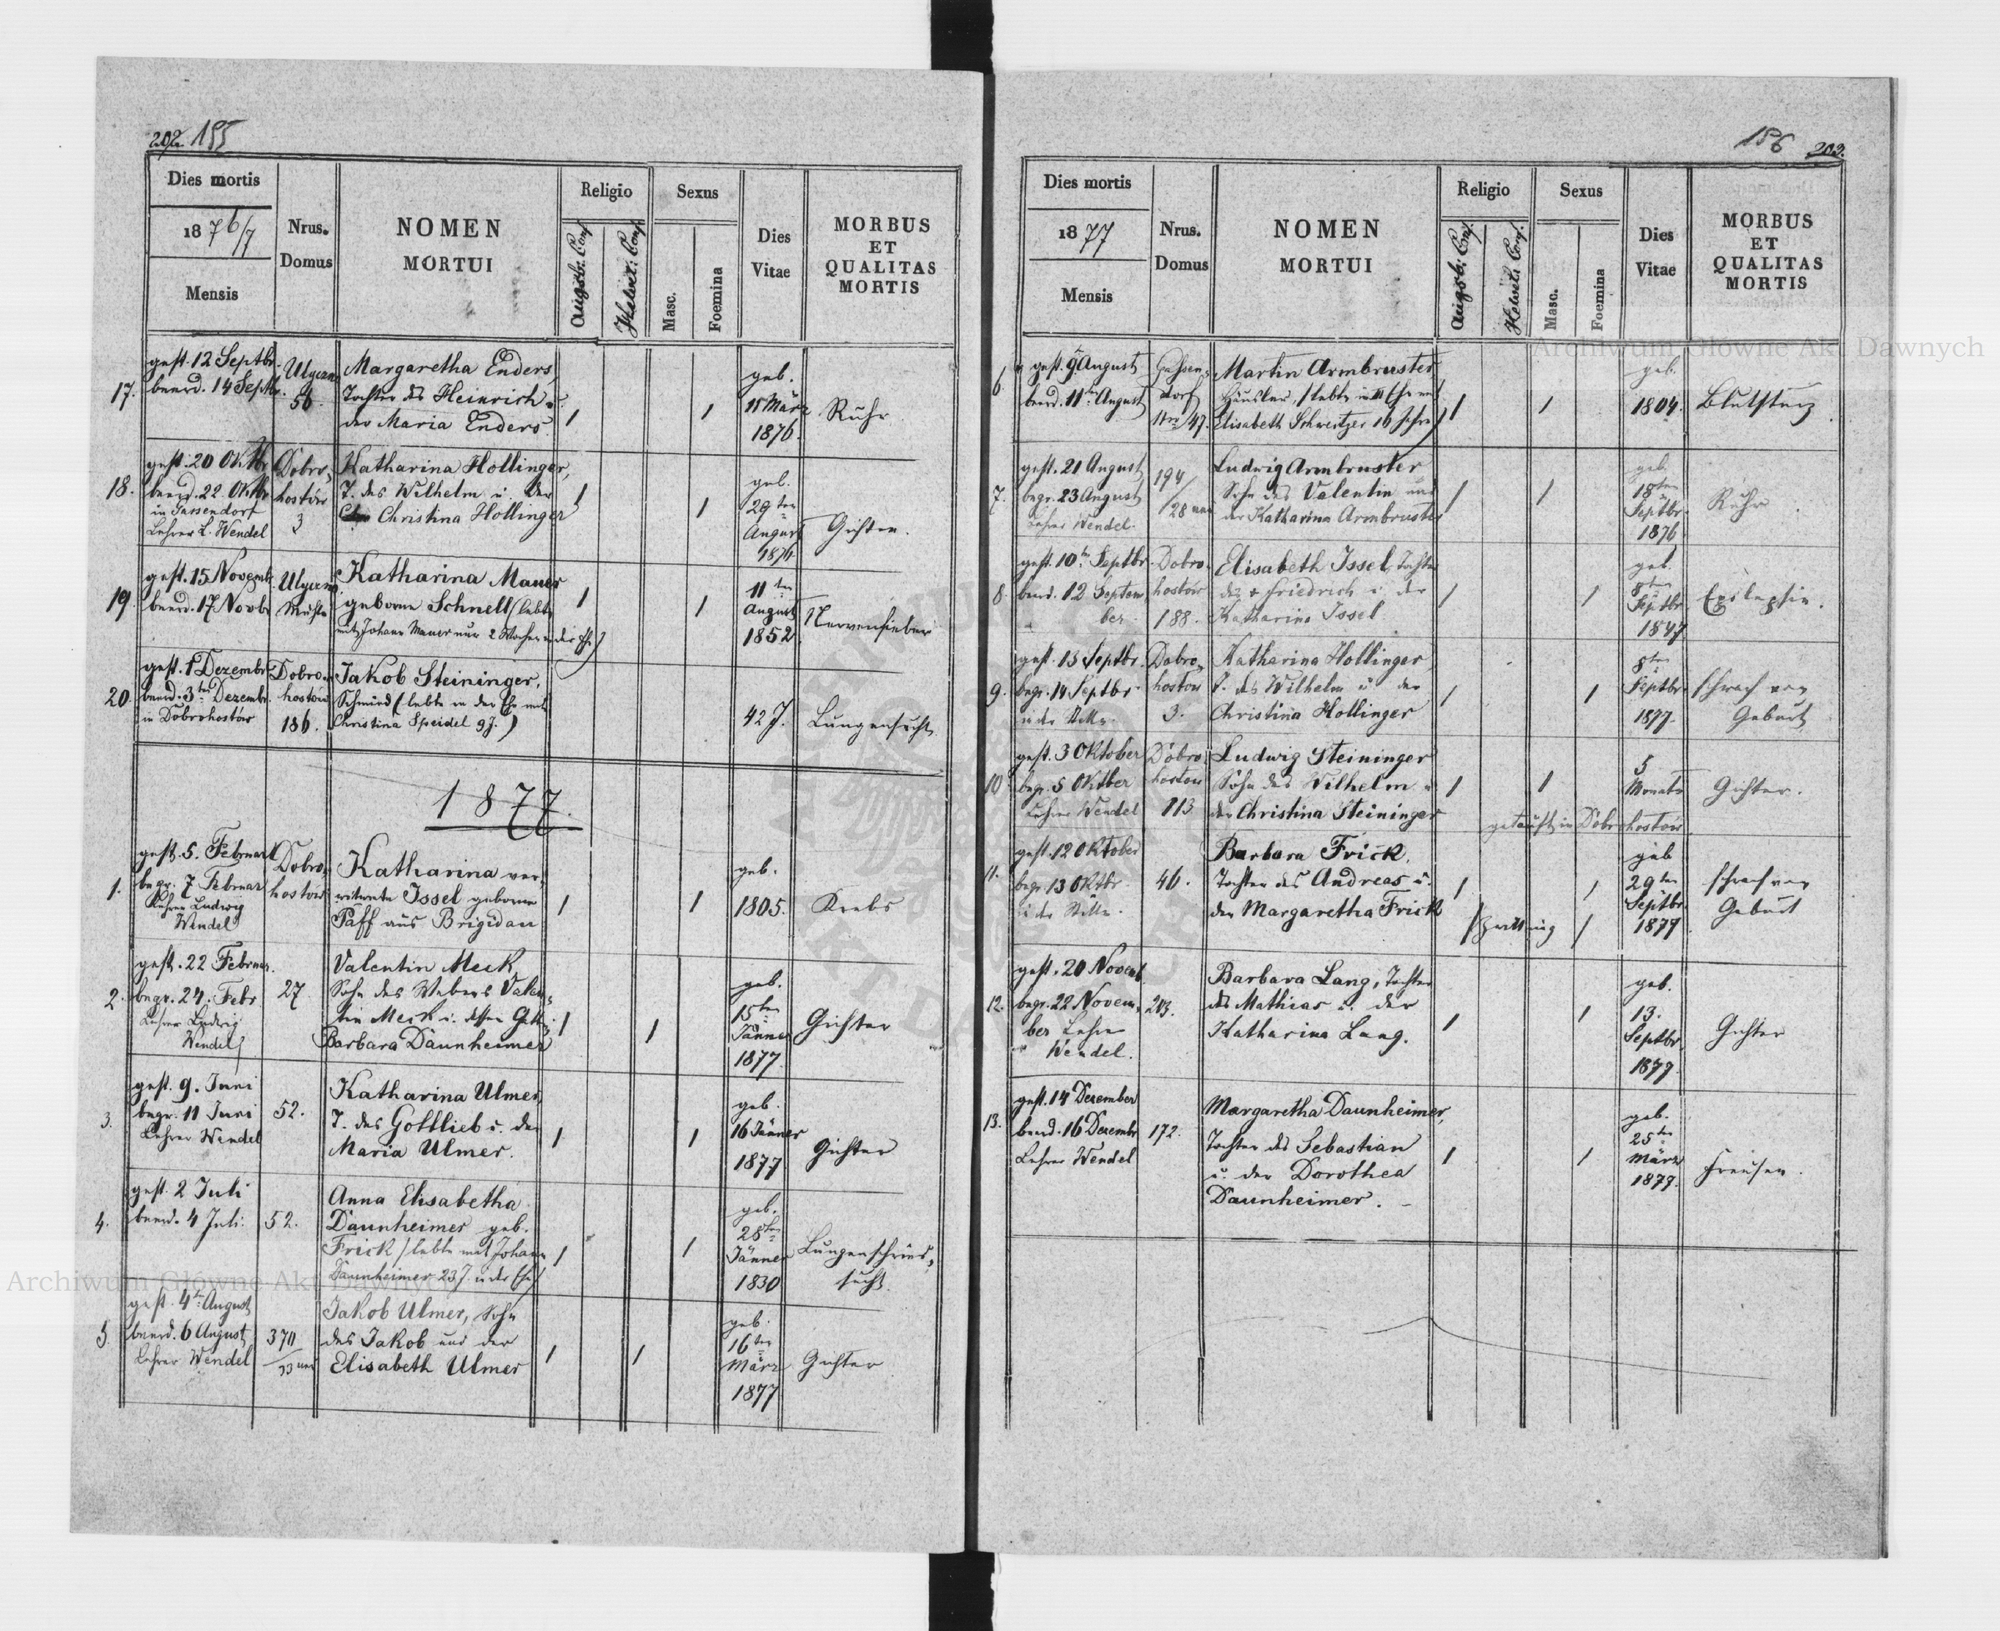 202. 155
Dies mortis
1876/7
Mensis
Nrus.
Domus
NOMEN
MORTUI
Religio
Augsb. Conf.
Helvet. Conf.
Sexus
Masc.
Foemina
Dies
Vitae
MORBUS
ET
QUALITAS
MORTIS
17.
gest. 12 Septbr.
beerd. 14 Septbr.
56.
Margaretha Enders,
Tochter des Heinrich u.
der Maria Enders.
geb.
15 März
1876.
Ruhr
18.
gest. 20 Oktbr
beerd. 22. Oktbr
in
Lehrer L. Wendel
Dobro-
hostów
3
Katharina Hollinger,
T. des Wilhelm u. der
Christina Hollinger
geb.
29ten
August
Gichter.
19.
gest. 15 Novemb.
beerd. 17. Novbr
Katharina Mauer
geborne Schnell (lebte
mit Johann Mauer nur 2 Wochen in der Ehe)
11ten
August
1852
Nervenfieber
20.
gest. 1 Dezembr
beerd. 3ten Dezembr.
in Dobrohostów
Dobro-
hostów
186.
Jakob Steininger,
Schmied (lebte in der Ehe mit
Christina Speidel 9 J.)
42 J.
Lungensucht
1877.
1.
gest. 5. Februar
begr. 7 Februar
Lehrer Ludwig
Wendel
Dobro-
hostów
Katharina ver-
witwete Issel geborne
Paff aus Brigidau
geb.
1805.
Krebs
2.
gest. 22 Februar.
begr. 24. Febr
Lehrer Ludwig
Wendel
27
Valentin Meck,
Sohn des Webers Valen-
tin Meck u. dessen Gattin
Barbara Daunheimer
geb.
15ten
Jänner
1877
Gichter
3.
gest. 9. Juni
begr. 11 Juni
Lehrer Wendel
52.
Katharina Ulmer,
T. des Gottlieb u. der
Maria Ulmer.
geb.
16 Jänner
1877
Gichter
4.
gest. 2 Juli
beerd. 4 Juli.
52.
Anna Elisabetha
Daunheimer geb.
Frick (lebte mit Johann
Daunheimer 23 J. in der Ehe)
geb.
28ten
Jänner
1830
Lungenschwind-
sucht.
5.
gest. 4ten August
beerd. 6 August
Lehrer Wendel
370
Jakob Ulmer, Sohn
des Jakob und der
Elisabeth Ulmer
geb.
16ten
März
1877
Gichter
156 203.
Dies mortis
1877
Mensis
Nrus.
Domus
NOMEN
MORTUI
Religio
Augsb. Conf.
Helvet. Conf.
Sexus
Masc.
Foemina
Dies
Vitae
MORBUS
ET
QUALITAS
MORTIS
6.
gest. 9. August
beerd. 11ten August
Gassen-
dorf
Nro 47.
Martin Armbruster
Häusler, (lebte in II Ehe mit
Elisabeth Schweitzer 16 Jahre)
geb.
1804.
Blutsturz
7.
gest. 21 August
begr. 23 August
Lehrer Wendel
194
Ludwig Armbruster
Sohn des Valentin und
der Katharina Armbruster
geb.
18ten
Septbr.
1876
Ruhr.
8.
gest. 10ten Septbr.
beerd. 12 Septem-
ber
Dobro-
hostów
188.
Elisabeth Issel, Tochter
des + Friedrich u. der
Katharina Issel
geb.
8ten
Septbr
1847
Epilepsie.
9.
gest. 13 Septbr.
begr. 14 Septbr.
in der Stille.
Dobro-
hostów
3.
Katharina Hollinger
T. des Wilhelm u. der
Christina Hollinger
8ten
Septbr.
1877.
schwach von
Geburt
10
gest. 3 Oktober
begr. 5 Oktober
Lehrer Wendel
Dobro-
hostów
113
Ludwig Steininger
Sohn des Wilhelm u
der Christina Steininger
getauft in Dobrohostów
5
Monate
Gichter.
11.
gest. 12 Oktober
begr. 13 Oktbr.
in der Stille.
46.
Barbara Frick,
Tochter des Andreas u.
der Margaretha Frick
(Zwilling)
geb
29ten
Septbr.
1877
schwach von
Geburt
12.
gest. 20 Novemb
begr. 22 Novem-
ber Lehrer
Wendel.
203.
Barbara Lang, Tochter
des Mathias u. der
Katharina Lang.
geb.
13.
Septbr.
1877.
Gichter
13.
gest. 14 Dezember
beerd. 16 Dezembr
Lehrer Wendel
172.
Margaretha Daunheimer,
Tochter des Sebastian
u. der Dorothea
Daunheimer.
geb.
25ten
März
1877.
Freisen.
Archiwum Główne Akt Dawnych
Archiwum Główne Akt Dawnych